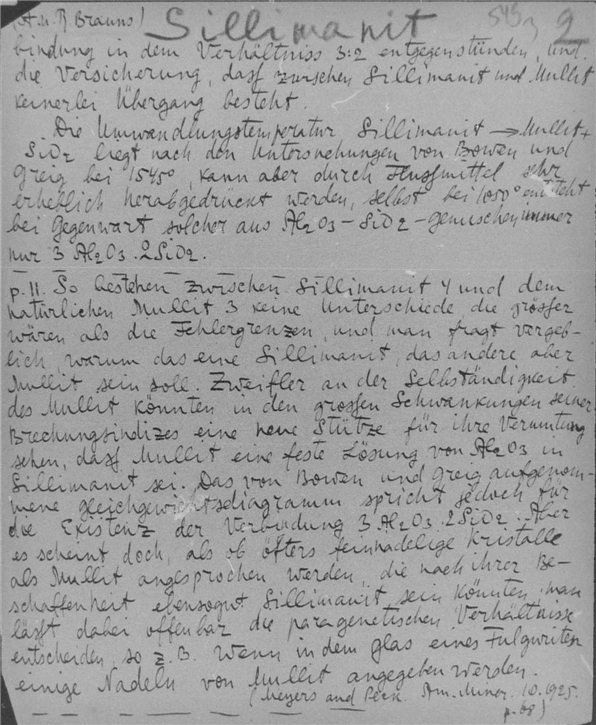 (A. u. R Brauns) Sillimanit 543 2
bindung in dem Verhältniss 3:2 entgegenstünden, und
die Versicherung, dasf zwischen Sillimanit und Mullit
keinerlei Übergang besteht.
Die Umwandlungstemperatur Sillimanit → Mullit +
SiO2 liegt nach den Untersuchungen von Bowen und
Greig bei 1545°, kann aber durch Flussmittel sehr
erheblich herabgedrückt werden, selbst bei 1050° entsteht
bei Gegenwart solcher aus Al2O3 – SiO2 – gemischen immer
nur 3 Al2O3 . 2SiO2.
p. 11. So bestehen zwischen Sillimanit 4 und dem
natürlichen Mullit 3 keine Unterschiede, die grösser
wären als die Fehlergrenzen, und man fragt vergeb-
lich, warum das eine Sillimanit, das andere aber
Mullit sein soll. Zweifler an der Selbständigkeit
des Mullit könnten in den grossen Schwankungen seiner
Brechungsindizes eine neue Stütze für ihre Vermutung
sehen, dasf Mullit eine feste Lösung von Al2O3 in
Sillimanit sei. Das von Bowen und Greig aufgenom-
mene gleichgewichtsdiagramm spricht jedoch für
die Existenz der Verbindung 3 Al2O3 . 2SiO2. Aber
es scheint doch, als ob öfters feinnadelige Kristalle
als Mullit angesprochen werden, die nach ihrer Be-
schaffenheit ebensogut Sillimanit sein könnten, man
läfft dabei offenbar die paragenetischen Verhältnisse
entscheiden, so z. B. wenn in dem glas eines Fulgurites
einige Nadeln von Mullit angegeben werden.
(Meyers and Peck. Am. Miner. 10. 1925.
p. 08)